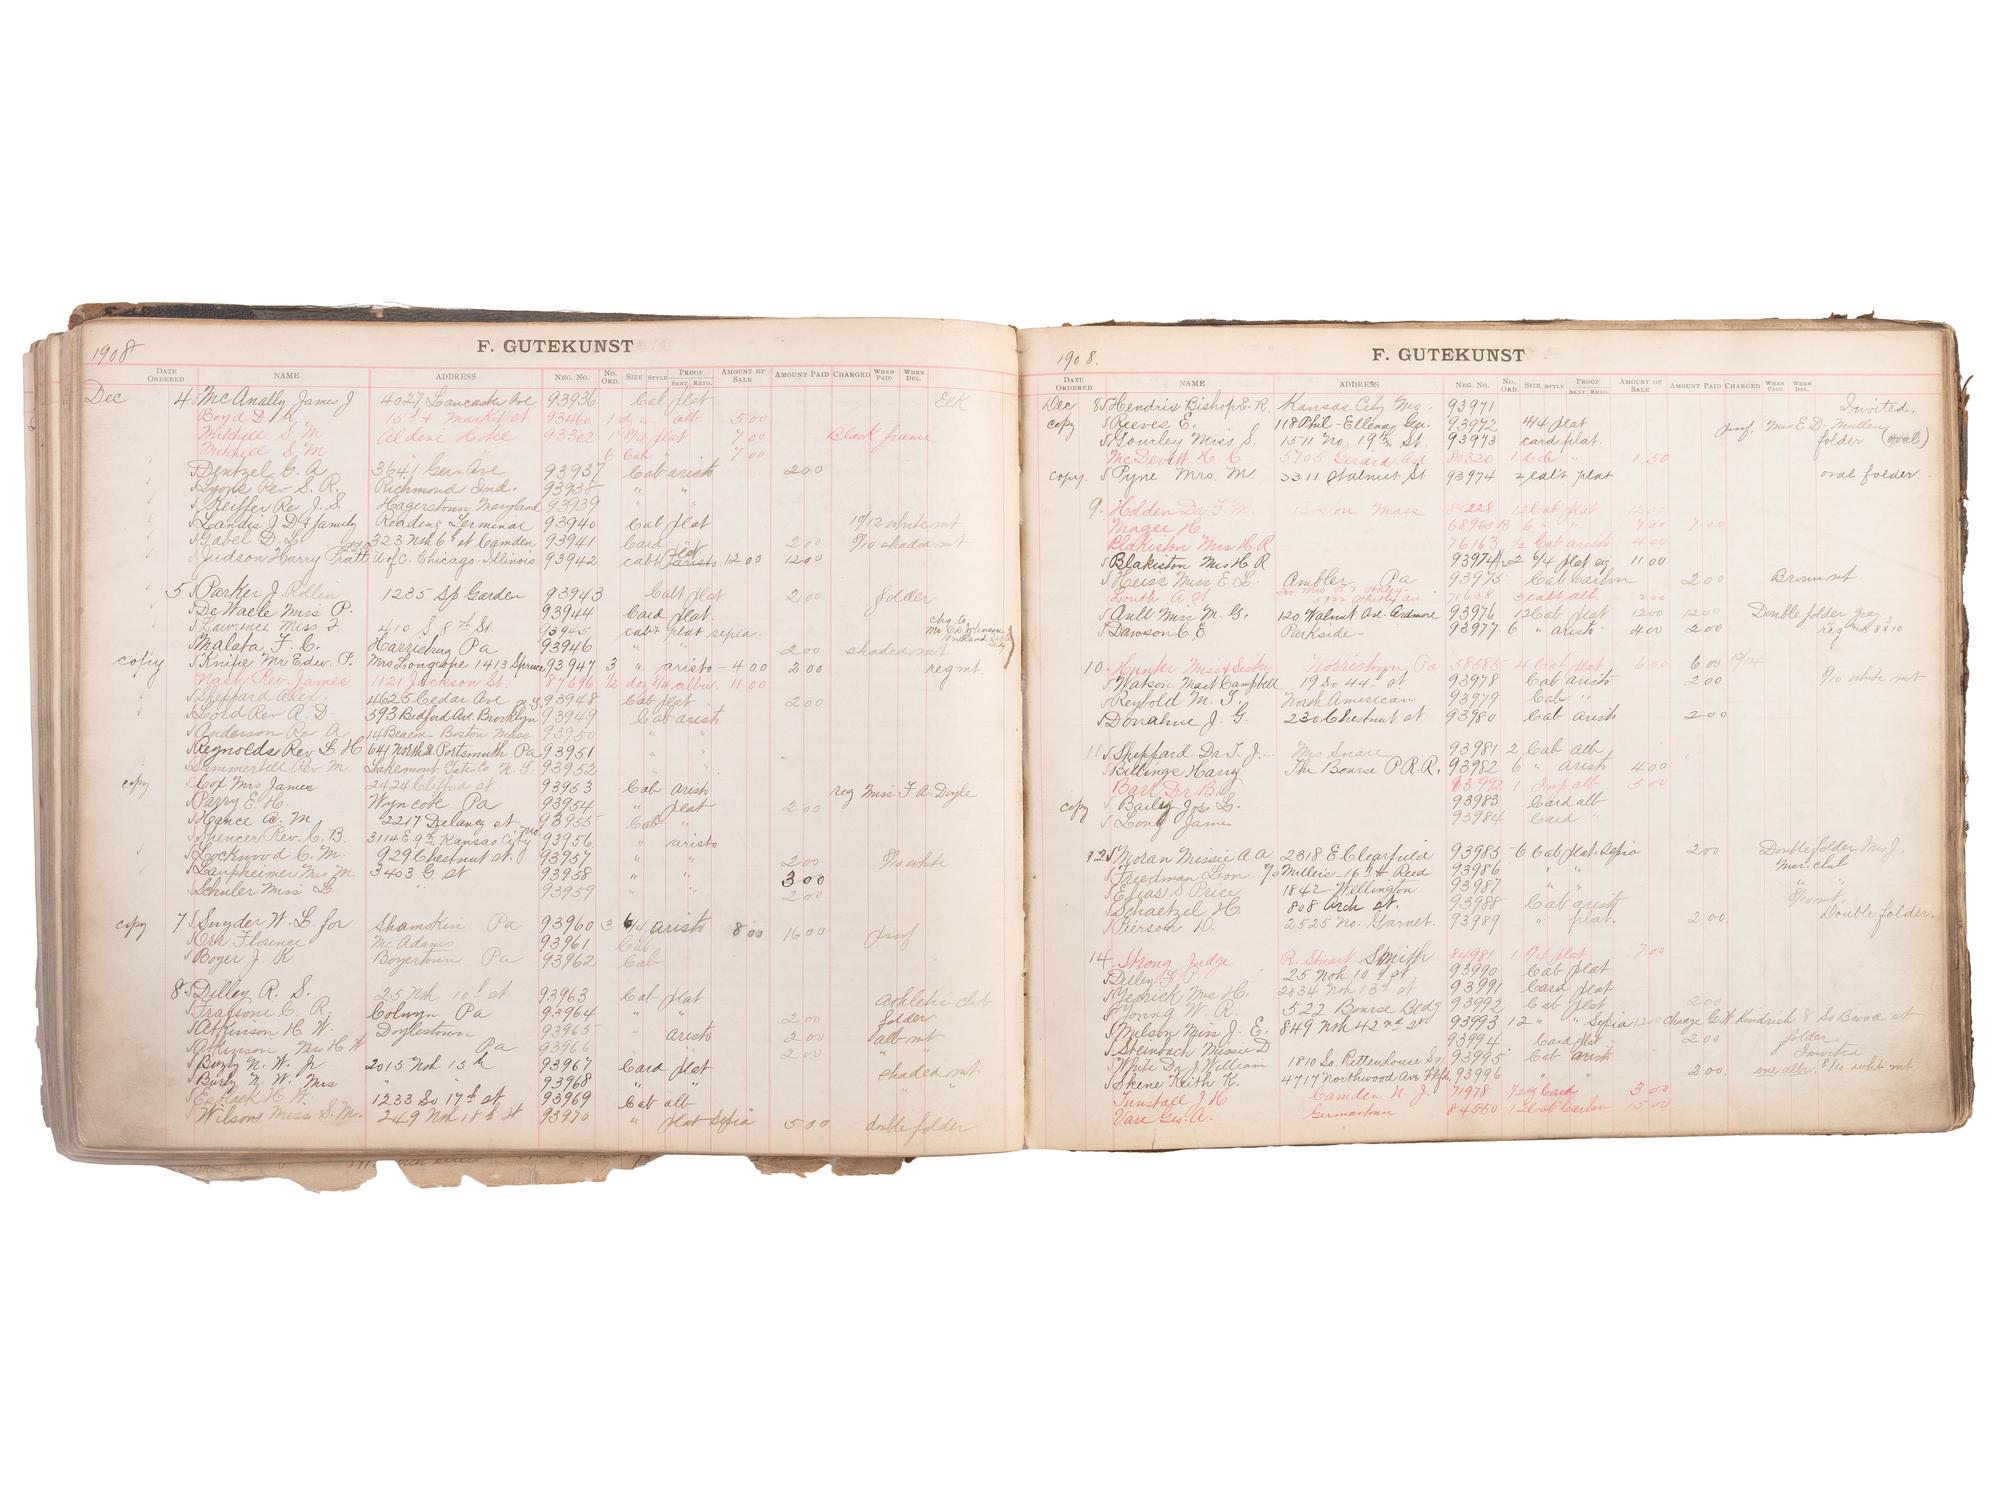 1908
F. GUTEKUNST
DATE ORDERED NAME ADDRESS NEG. NO. NO. ORD. SIZE STYLE PROOF SENT RETD. AMOUNT OF SALE AMOUNT PAID CHARGED WHEN PAID WHEN DEL.
Dec 4 McAnally James J 4027 Lancaster Ave 93936 Cab plat Elk
Boyd D K 15th + Market st 93460 1 alb 5 00
Mitchell S. M Aldine Hotel 93302 1 plat 7 00 Black frame
Mitchell S. M 6 Cab " 7 00
Dentzel G. A 3641 Ger. Ave 93937 Cab aristo 2 00
Rev S. R. Richmond Ind. 93938 " "
Rev J. S. Hagerstown Maryland 93939
Landis J D + family Reading Terminal 93940 Cab plat 10/12 white mt
Gabel D. L. 323 Nth 6th st Camden 93941 Card 2 00 8/10 shaded mt
Judson Harry Pratt U of C. Chicago Illinois 93942 cabt plat aristo 12 00 12 00
5 Parker J. Rollin 1235 Sp Garden 93943 Cab plat 2 00 folder
DeWaele Miss P. 93944 Card plat.
Lawrence Miss F. 410 S 8th St. 93945 cabt plat sepia. chg to
Malata F. C. Harrisburg Pa 93946 2 00 shaded mt
copy Knipe Mr Edw. P. Mrs Longcope 1413 Spruce 93947 3 " aristo - 4 00 2 00 reg mt.
Nash Rev. James 1121 Jackson St. 87696 1/2 doz album. 11 00
Sheppard Alex 4625 Cedar Ave 93948 Cab plat 2 00
Lord Rev A. D. 593 Bedford Ave. Brooklyn 93949 Cab aristo
Anderson Rev A 14 Beacon - Boston Mass. 93950 " "
Reynolds Rev L H 641 North St Portsmuth Pa 93951 " "
Summerbell Rev M. Lakemont Yates Co N. Y. 93952 " "
copy Cox Mrs James 2424 Clifford st 93953 Cab aristo reg Miss F. A. Doyle
Parry E. H. Wyncote Pa 93954 " plat 2 00
Hance A. M 2217 Delancy st. 93955 Cab "
Spencer Rev. C. B. 3114 E 9th Kansas City Mo. 93956 " aristo
Lockwood C. M. 929 Chestnut st. 93957 " " 2 00 8/10 white
Laupheimer Mrs M 3403 G st 93958 " " 3 00
Schuler Miss L 93959 2 00
copy 7 Snyder W. L. for Shamokin Pa 93960 3 6/4 aristo 8 00 16 00 proof
Orr Florence Mc Adams 93961 Cab
Boyer J. K Boyertown Pa 93962 Cab
8 Dilley R. S. 25 Nth 10th st. 93963 Cab plat athletic club
C. R. Colwyn Pa 93964 " " 2 00 folder
Atkinson H. W. Doylestown 93965 aristo 2 00 alb mt
Atkinson Mrs H. W Pa 93966 2 00 " "
Busby N. W. Jr 2015 Noh 13th 93967 Card plat shaded mt
Busby N. W. Mrs " 93968 " " " "
H. W. 1233 So 17th st 93969 Cab alb
Wilson Miss S. M. 249 Noh 18th st 93970 " plat Sepia 5 00 double folder
1908.
F. GUTEKUNST
DATE ORDERED NAME ADDRESS NEG. NO. NO. ORD. SIZE STYLE PROOF SENT RETD. AMOUNT OF SALE AMOUNT PAID CHARGED WHEN PAID WHEN DEL.
Dec 8 Hendrix Bishop E. R. Kansas City Mo. 93971 Invited.
copy Reeves E. 118 Phil-Ellena Ga. 93972 4/4 plat proof. Mrs E. D. Mullen
Gourley Miss S. 1511 No. 19th St. 93973 card plat. folder (oval)
McDevitt H. C 5705 Girard Ave 80320 1 Cab " 1 50
copy. Pyne Mrs. M 3311 Walnut St 93974 2 cabt plat oval folder.
9. Holden Dr F. M. Boston Mass 89228 12 Cab plat 12 00
Magee H 68965 B 6 " " 7 00 7 00
Blakiston Mrs H. R 76163 1/2 Cab aristo 4 00
Blakiston Mrs H R 93974 1/2 6/4 plat eg 11 00
Heiss Miss E L. Ambler Pa 93975 Cab Carbon 2 00 Brown mt
Louth A. J. 71638 3 cabt alb 2 00
Aull Miss M. G. 120 Walnut Ave. Ardmore 93976 12 Cab plat 12 00 12 00 Double folder gray
Dawson C. E. Parkside - 93977 6 " aristo 4 00 2 00 reg and 8 x 10
10. Hunter Miss & Sister Norristown Pa 58585 4 Cab plat 6 00 6 00 12/14
Watson Mast Campbell 19 So 44th st 93978 Cab aristo 2 00 8/10 white mt
Reybold M. S. North American 93979 Cab "
Donahue J. G. 230 Chestnut st 93980 Cab aristo 2 00
11 Sheppard Dr T. J. Mrs Snare 93981 2 Cab alb
Billings Harry The Bourse P.R.R. 93982 6 " aristo 4 00
Bart Dr B. 1 Imp alb 5 00
copy Bailey Jos L. 93983 Card alb
Long James 93984 Card "
12 Moran Missie A A 2318 E Clearfield 93985 6 Cab plat. Sepia 2 00 Double folder Miss J.
Freedman Leon c/o Millers - 16th + Reed 93986 " " Mus. club
Elias S Price 1842 Wellington 93987 " " " "
Schaetzel H. 808 Arch st. 93988 Cab aristo 8/10 mt.
Pierson D. 2525 No. Garnet. 93989 " plat. 2 00 Double folder.
14. Strong Judge R. Stuart Smith 84981 1 plat 7 00
Dilley F. 25 Noh 10th st 93990 Cab plat
Mrs H. 2034 Noh 13th st 93991 Card plat
Young W. R. 522 Bourse Bldg 93992 Cab plat 2 00
Nulson Miss J. E. 849 Nth 42nd st 93993 12 " " Sepia 12 00 charge G. W. Kindrich 8 So Broad st
Steinbach Missie D 93994 Card plat 2 00 folder
White Dr J. William 1810 So. Rittenhouse Sq. 93995 Cab aristo Invited
Skene Keith K. 4717 Northwood Ave Fkfd. 93996 " " 2 00. one albm. 8/10 whit mt.
Tunstall J. H Camden N. J. 71978 1/2 Cards 3 00
Van Geo. A. Germantown 84550 12 Cab Carbon 15 00